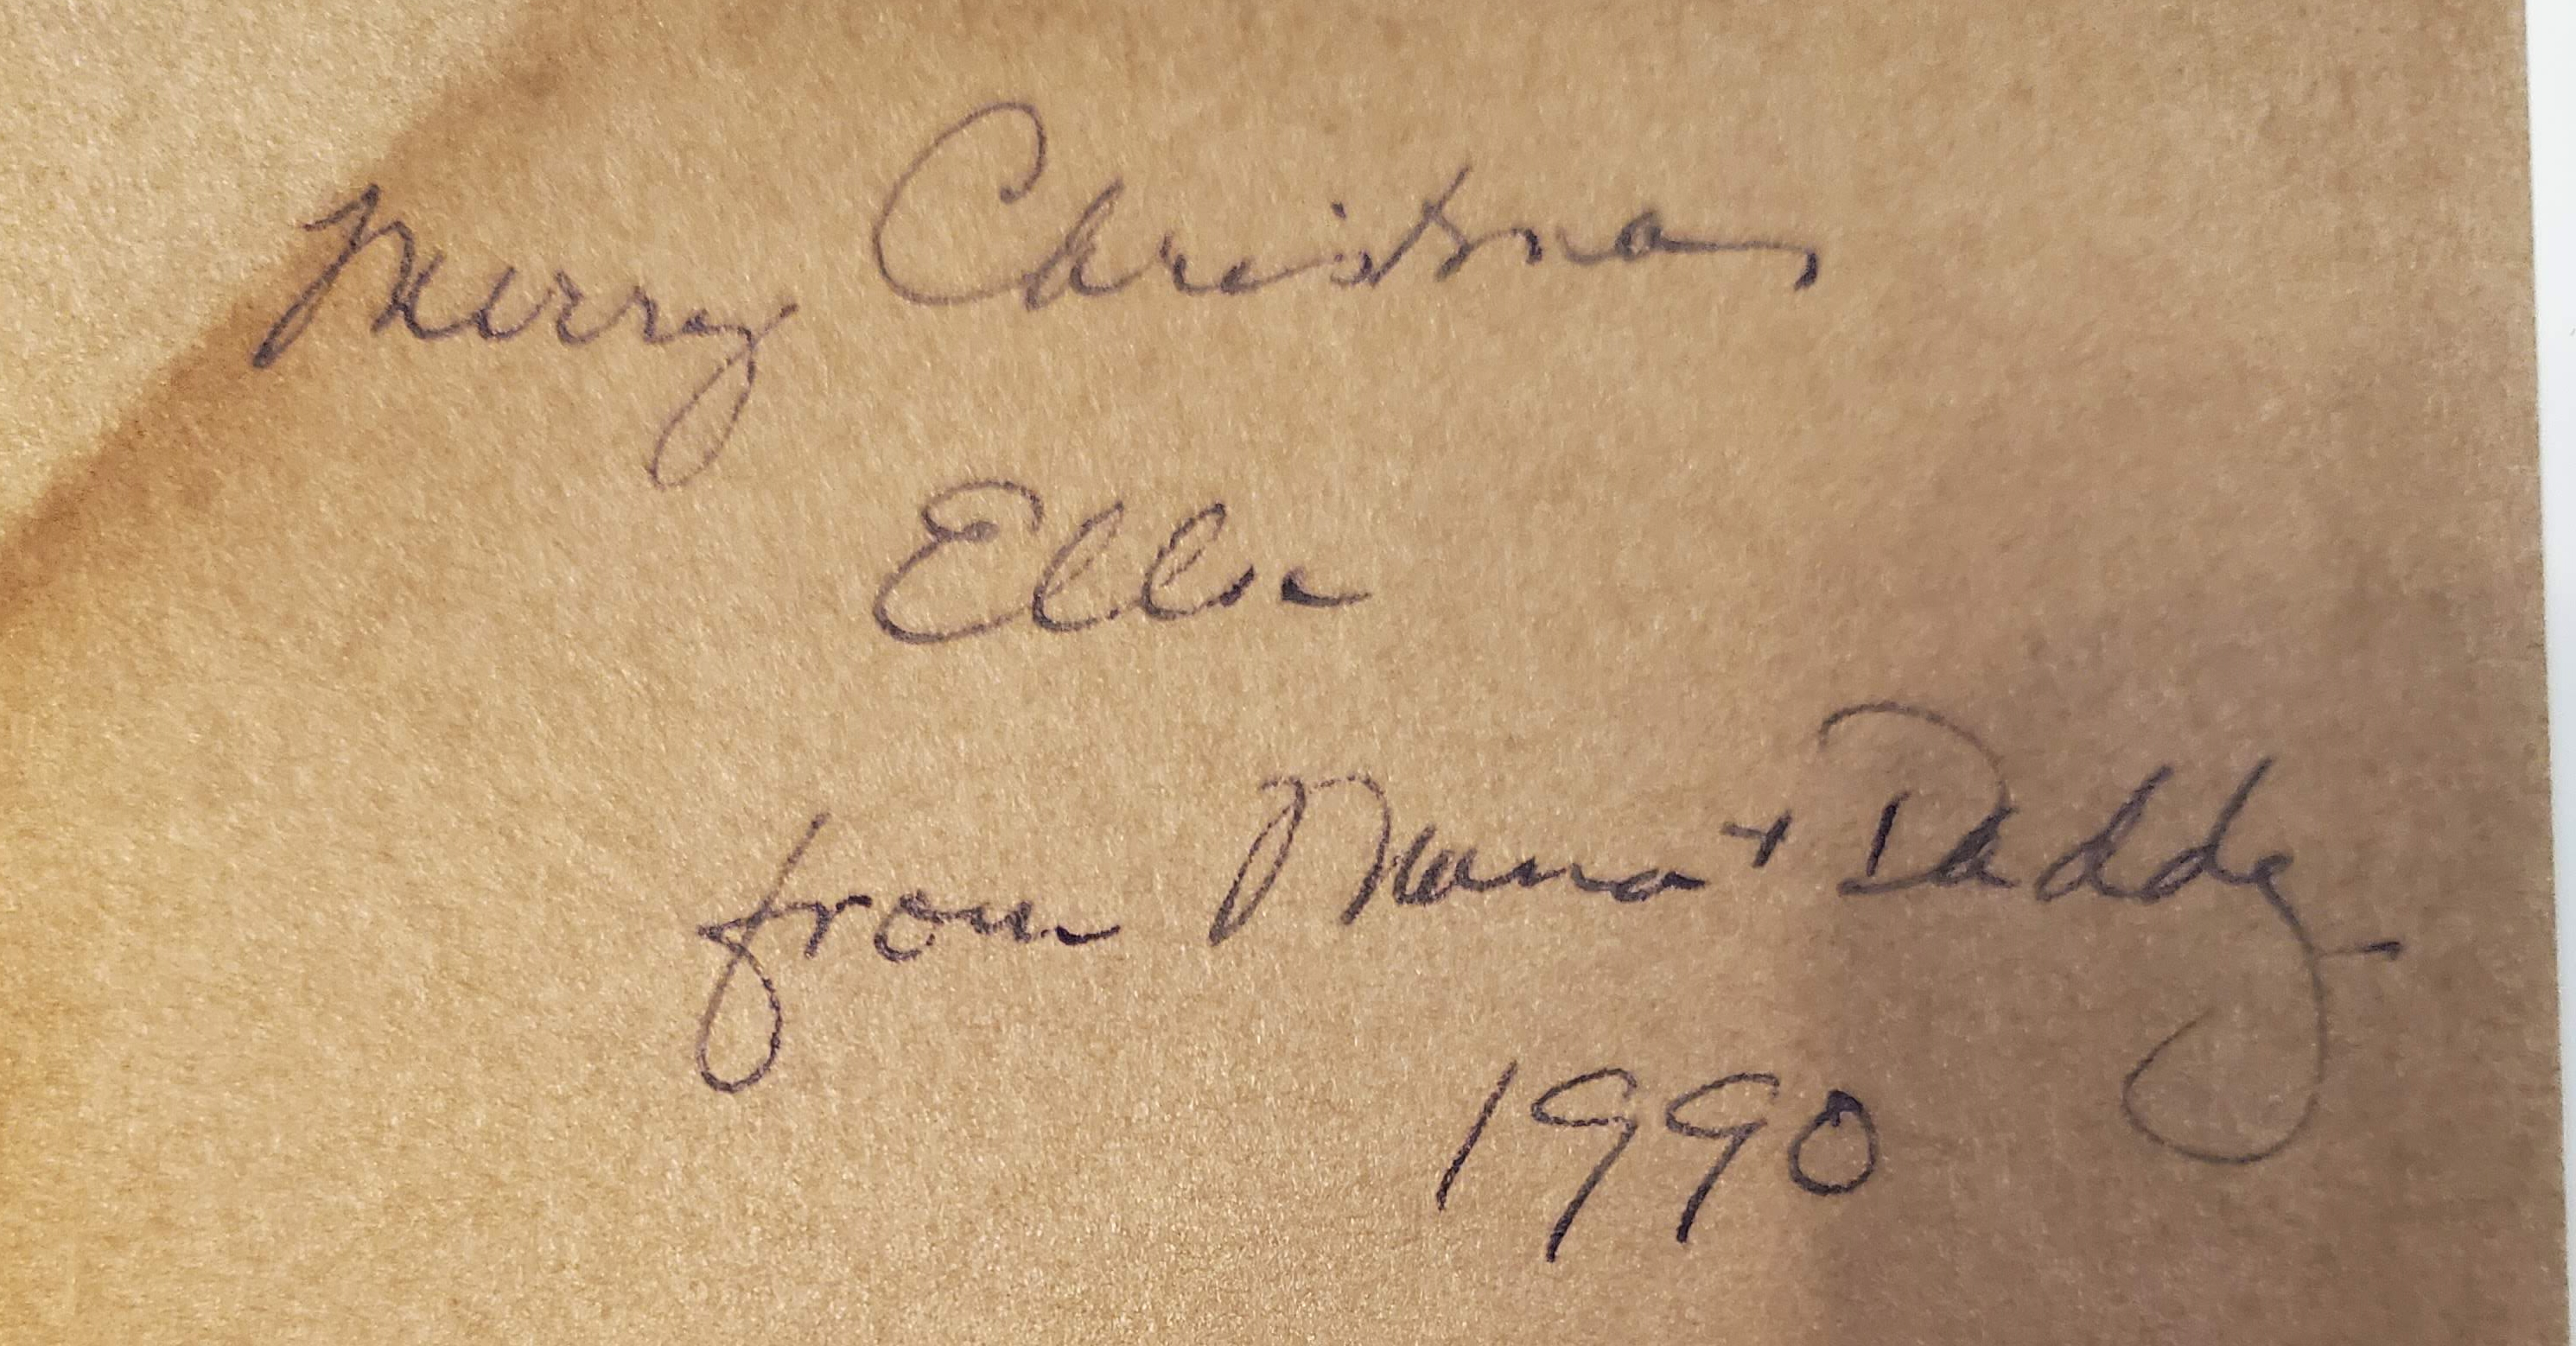 Merry Christmas
Ellie
from Mama + Daddy
1990